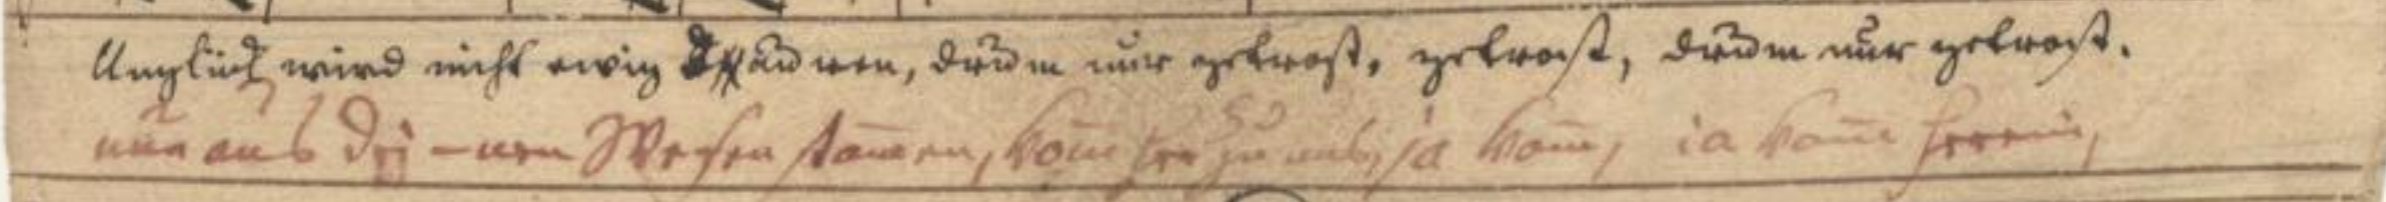 Unglück wird nicht ewig dauren, drum nur getrost, getrost, drum nur getrost.
nun aus dei-nen Wesen stam̄en, kom̄ her zu uns, ja kom̄, ia kom̄e herein,